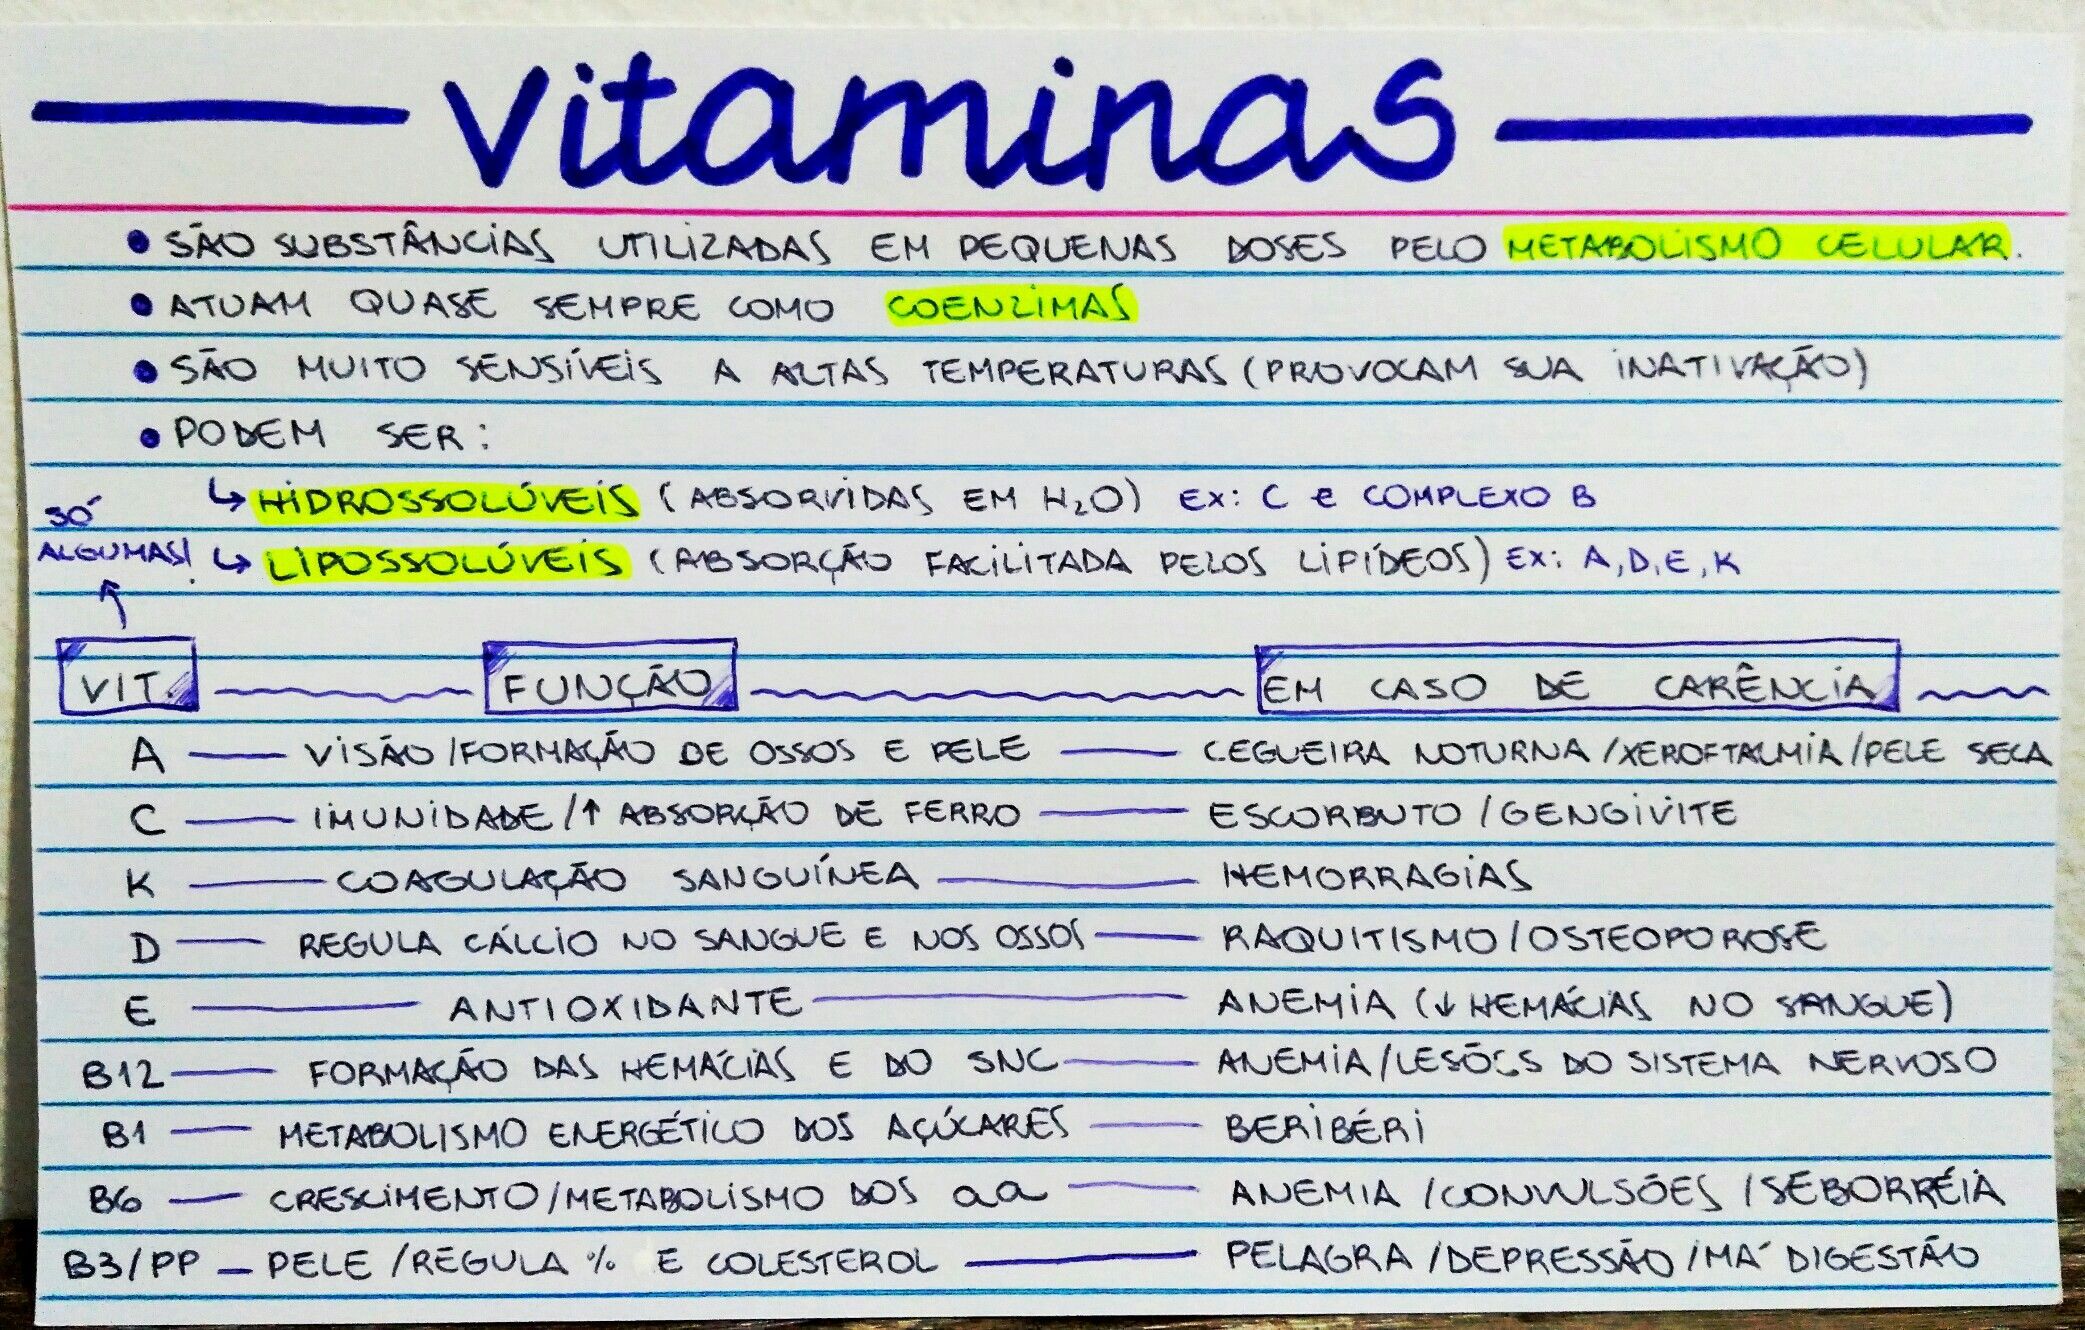 vitaminas
• SÃO SUBSTÂNCIAS UTILIZADAS EM PEQUENAS DOSES PELO METABOLISMO CELULAR.
• ATUAM QUASE SEMPRE COMO COENZIMAS
• SÃO MUITO SENSÍVEIS A ALTAS TEMPERATURAS (PROVOCAM SUA INATIVAÇÃO)
• PODEM SER:
↳ HIDROSSOLÚVEIS (ABSORVIDAS EM H₂O) EX: C e COMPLEXO B
SÓ
ALGUMAS!
↳ LIPOSSOLÚVEIS (ABSORÇÃO FACILITADA PELOS LIPÍDEOS) EX: A, D, E, K
VIT. FUNÇÃO EM CASO DE CARÊNCIA
A — VISÃO / FORMAÇÃO DE OSSOS E PELE — CEGUEIRA NOTURNA / XEROFTALMIA / PELE SECA
C — IMUNIDADE / ↑ ABSORÇÃO DE FERRO — ESCORBUTO / GENGIVITE
K — COAGULAÇÃO SANGUÍNEA — HEMORRAGIAS
D — REGULA CÁLCIO NO SANGUE E NOS OSSOS — RAQUITISMO / OSTEOPOROSE
E — ANTIOXIDANTE — ANEMIA (↓ HEMÁCIAS NO SANGUE)
B12 — FORMAÇÃO DAS HEMÁCIAS E DO SNC — ANEMIA / LESÕES DO SISTEMA NERVOSO
B1 — METABOLISMO ENERGÉTICO DOS AÇÚCARES — BERIBÉRI
B6 — CRESCIMENTO / METABOLISMO DOS aa — ANEMIA / CONVULSÕES / SEBORRÉIA
B3/PP — PELE / REGULA % E COLESTEROL — PELAGRA / DEPRESSÃO / MÁ DIGESTÃO